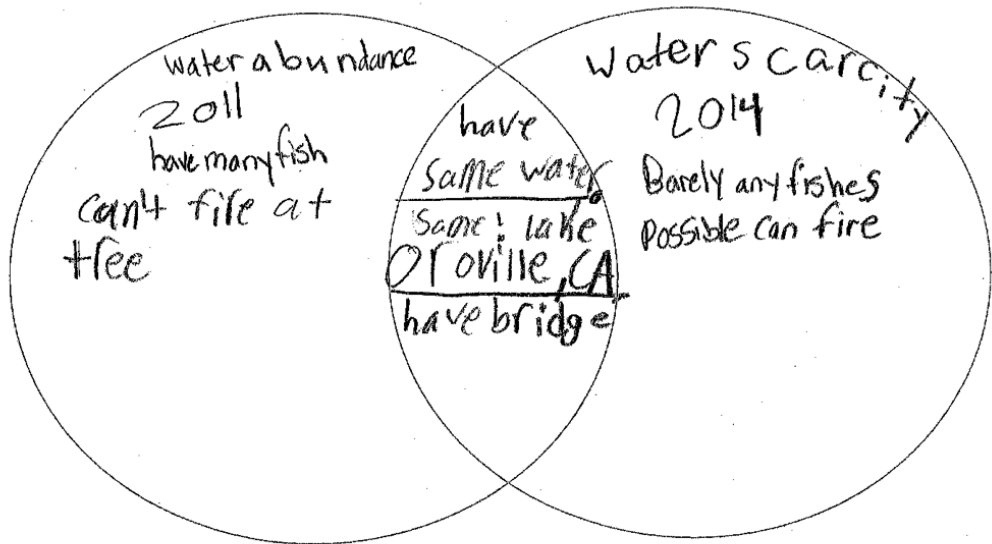 water abundance
2011
have many fish
can't fire at
tree
have
same water.
same: lake
Oroville, CA
have bridge
water scarcity
2014
Barely any fishes
possible can fire